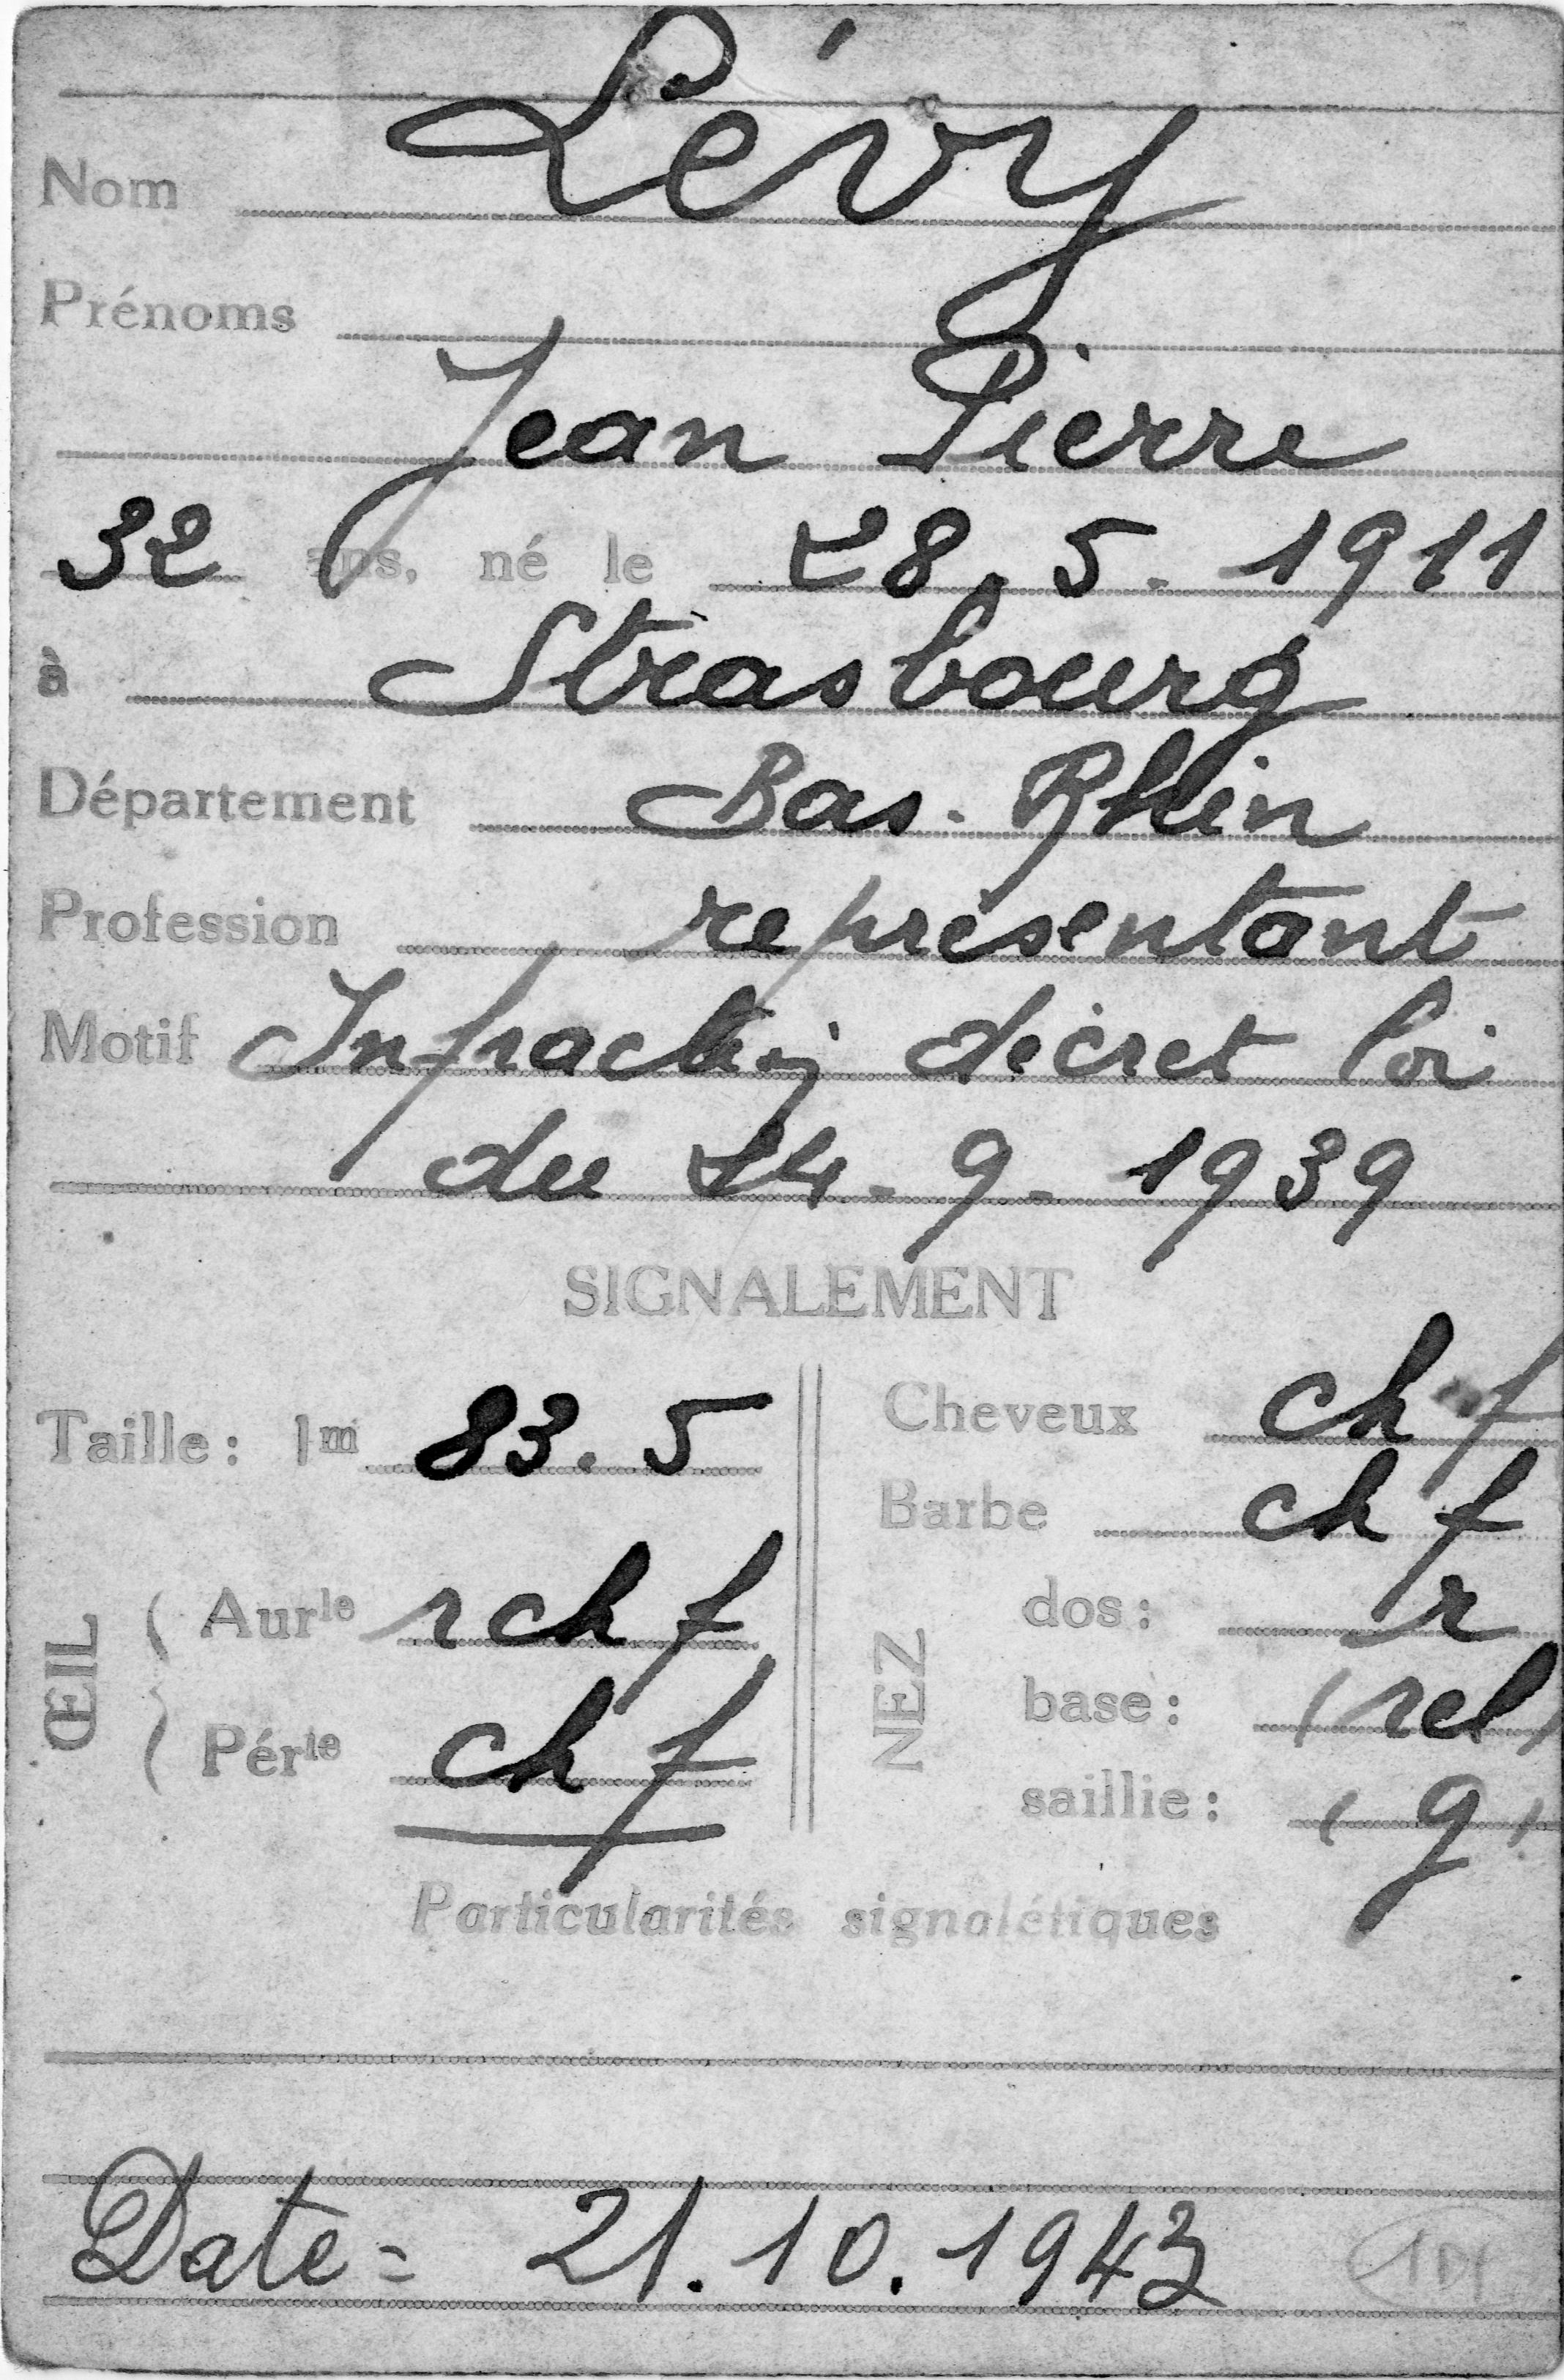 Nom Lévy
Prénoms
Jean Pierre
32 ans, né le 28.5.1911
à Strasbourg
Département Bas-Rhin
Profession représentant
Motif Infraction décret loi
du 24-9-1939
SIGNALEMENT
Taille: 1m 83.5
Cheveux ch f
Barbe ch f
ŒIL
Aurle r ch f
Périe ch f
NEZ
dos: r
base: (rel)
saillie: (g)
Particularités signalétiques
Date = 21.10.1943